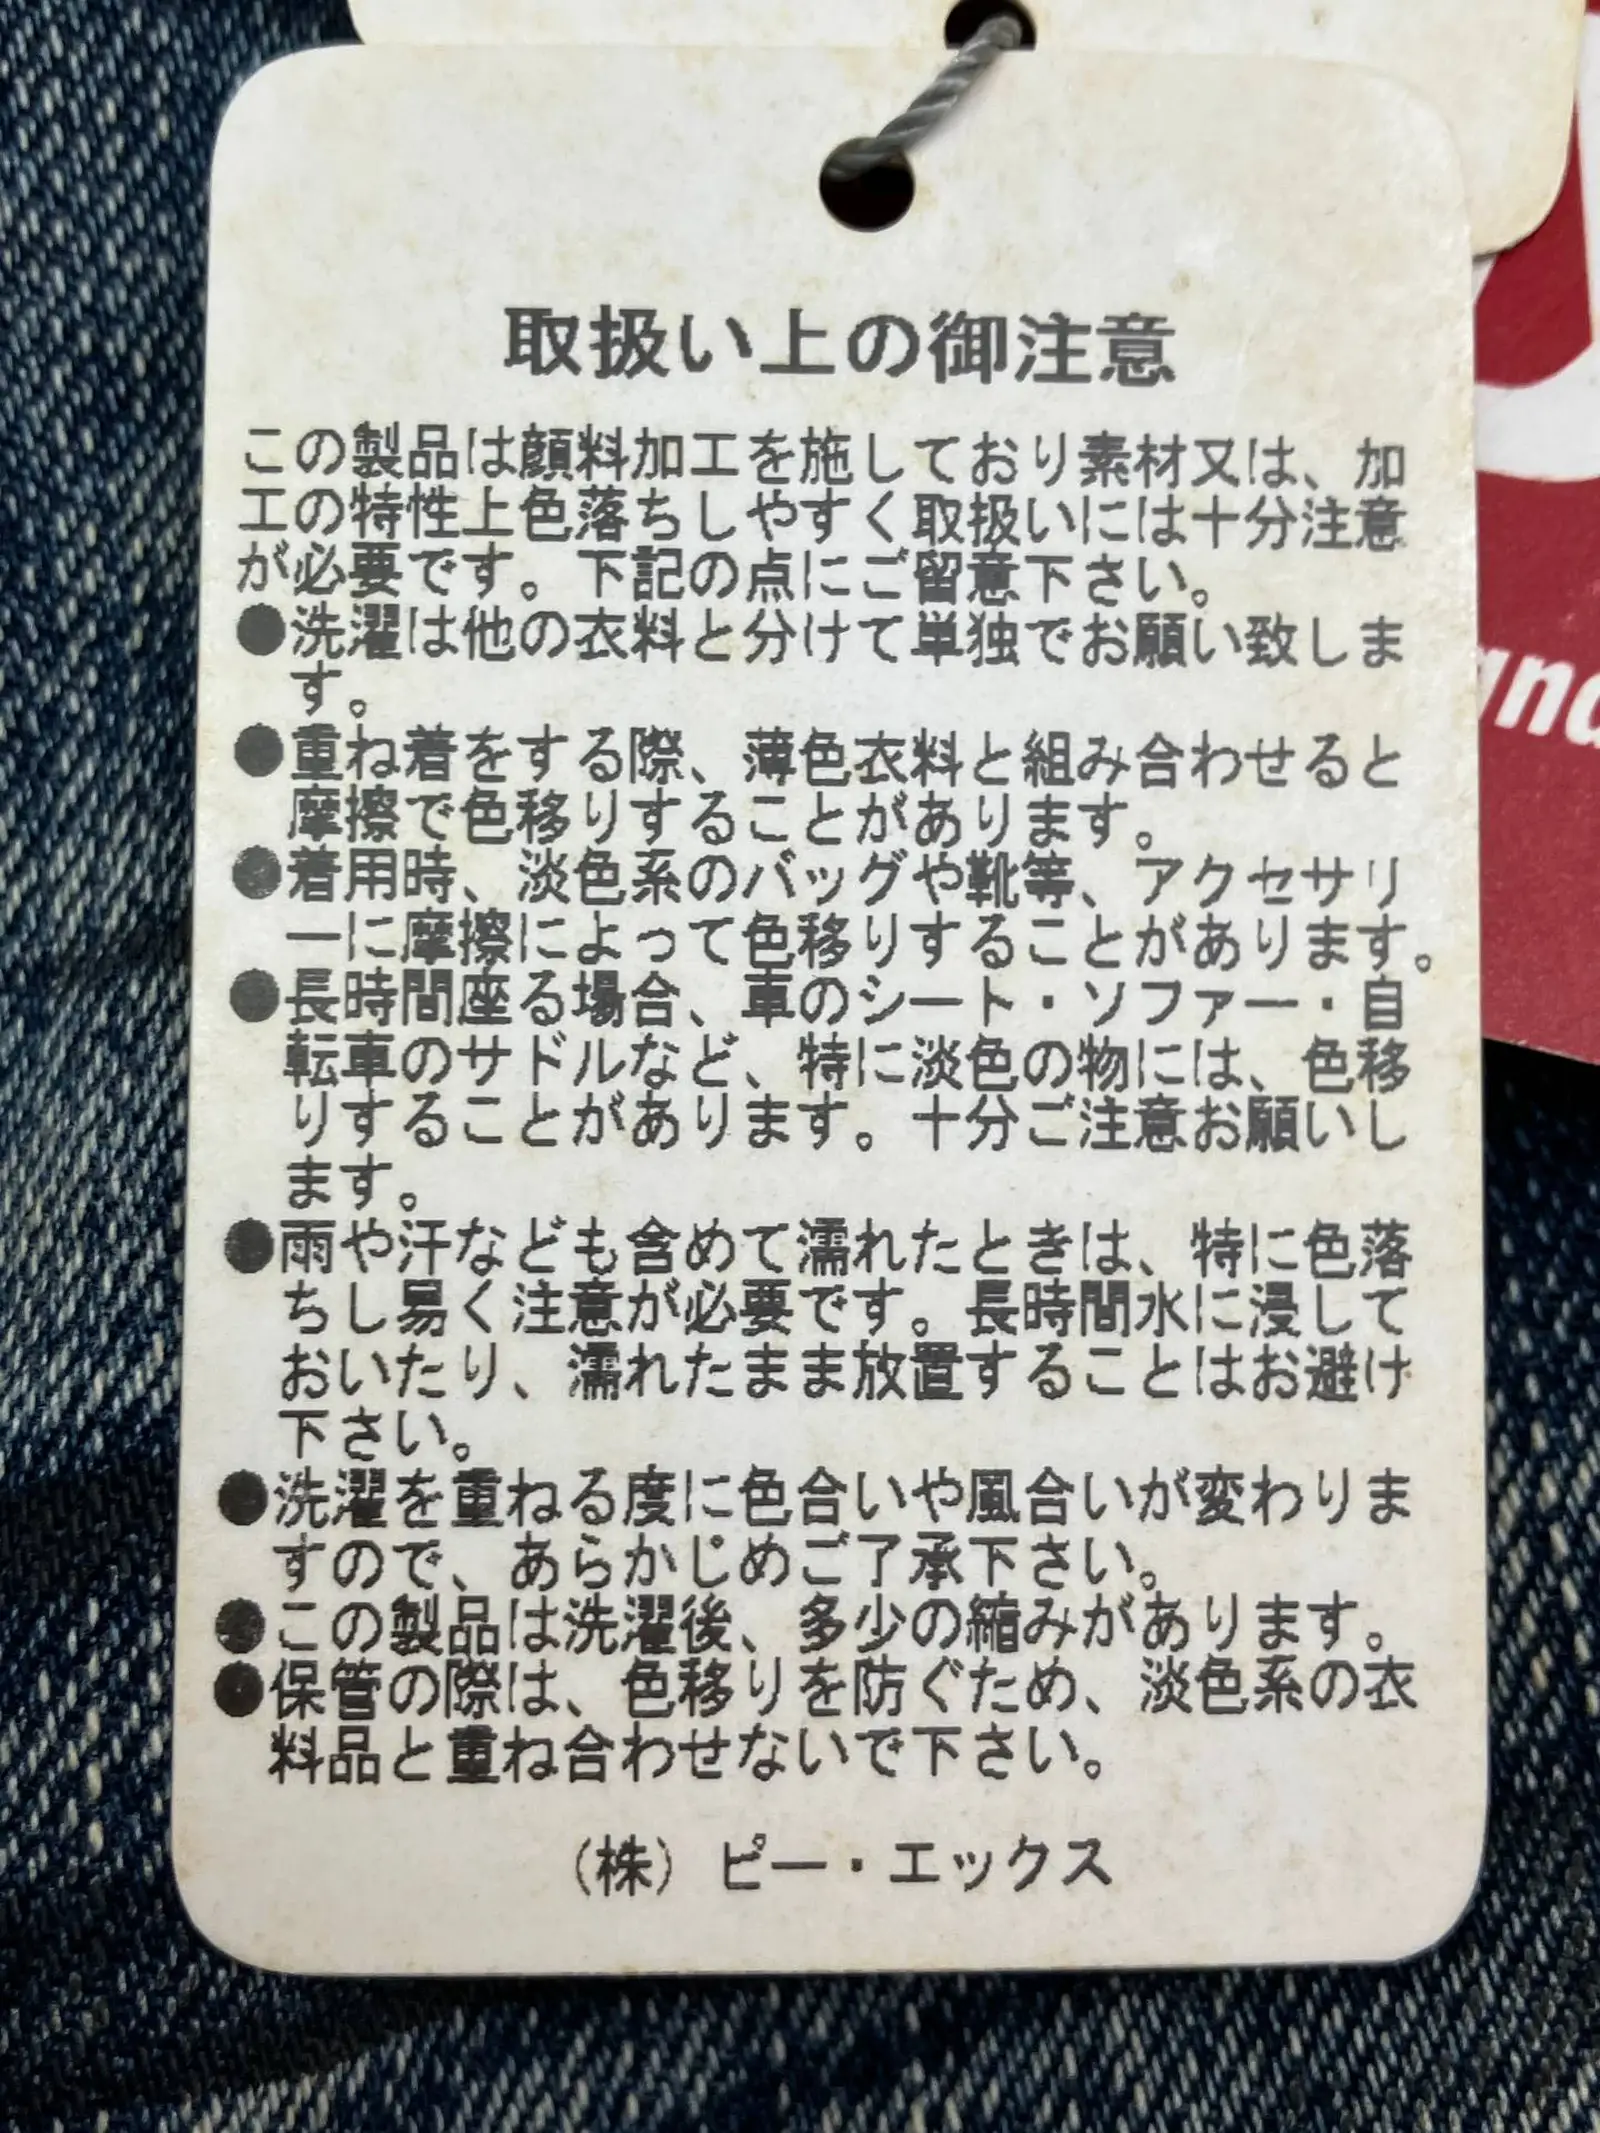 取扱い上の御注意
この製品は顔料加工を施しており素材又は、加
工の特性上色落ちしやすく取扱いには十分注意
が必要です。下記の点にご留意下さい。
●洗濯は他の衣料と分けて単独でお願い致しま
す。
●重ね着をする際、薄色衣料と組み合わせると
摩擦で色移りすることがあります。
●着用時、淡色系のバッグや靴等、アクセサリ
ーに摩擦によって色移りすることがあります。
●長時間座る場合、車のシート・ソファー・自
転車のサドルなど、特に淡色の物には、色移
りすることがあります。十分ご注意お願いし
ます。
●雨や汗なども含めて濡れたときは、特に色落
ちし易く注意が必要です。長時間水に浸して
おいたり、濡れたまま放置することはお避け
下さい。
●洗濯を重ねる度に色合いや風合いが変わりま
すので、あらかじめご了承下さい。
●この製品は洗濯後、多少の縮みがあります。
●保管の際は、色移りを防ぐため、淡色系の衣
料品と重ね合わせないで下さい。
（株）ピー・エックス